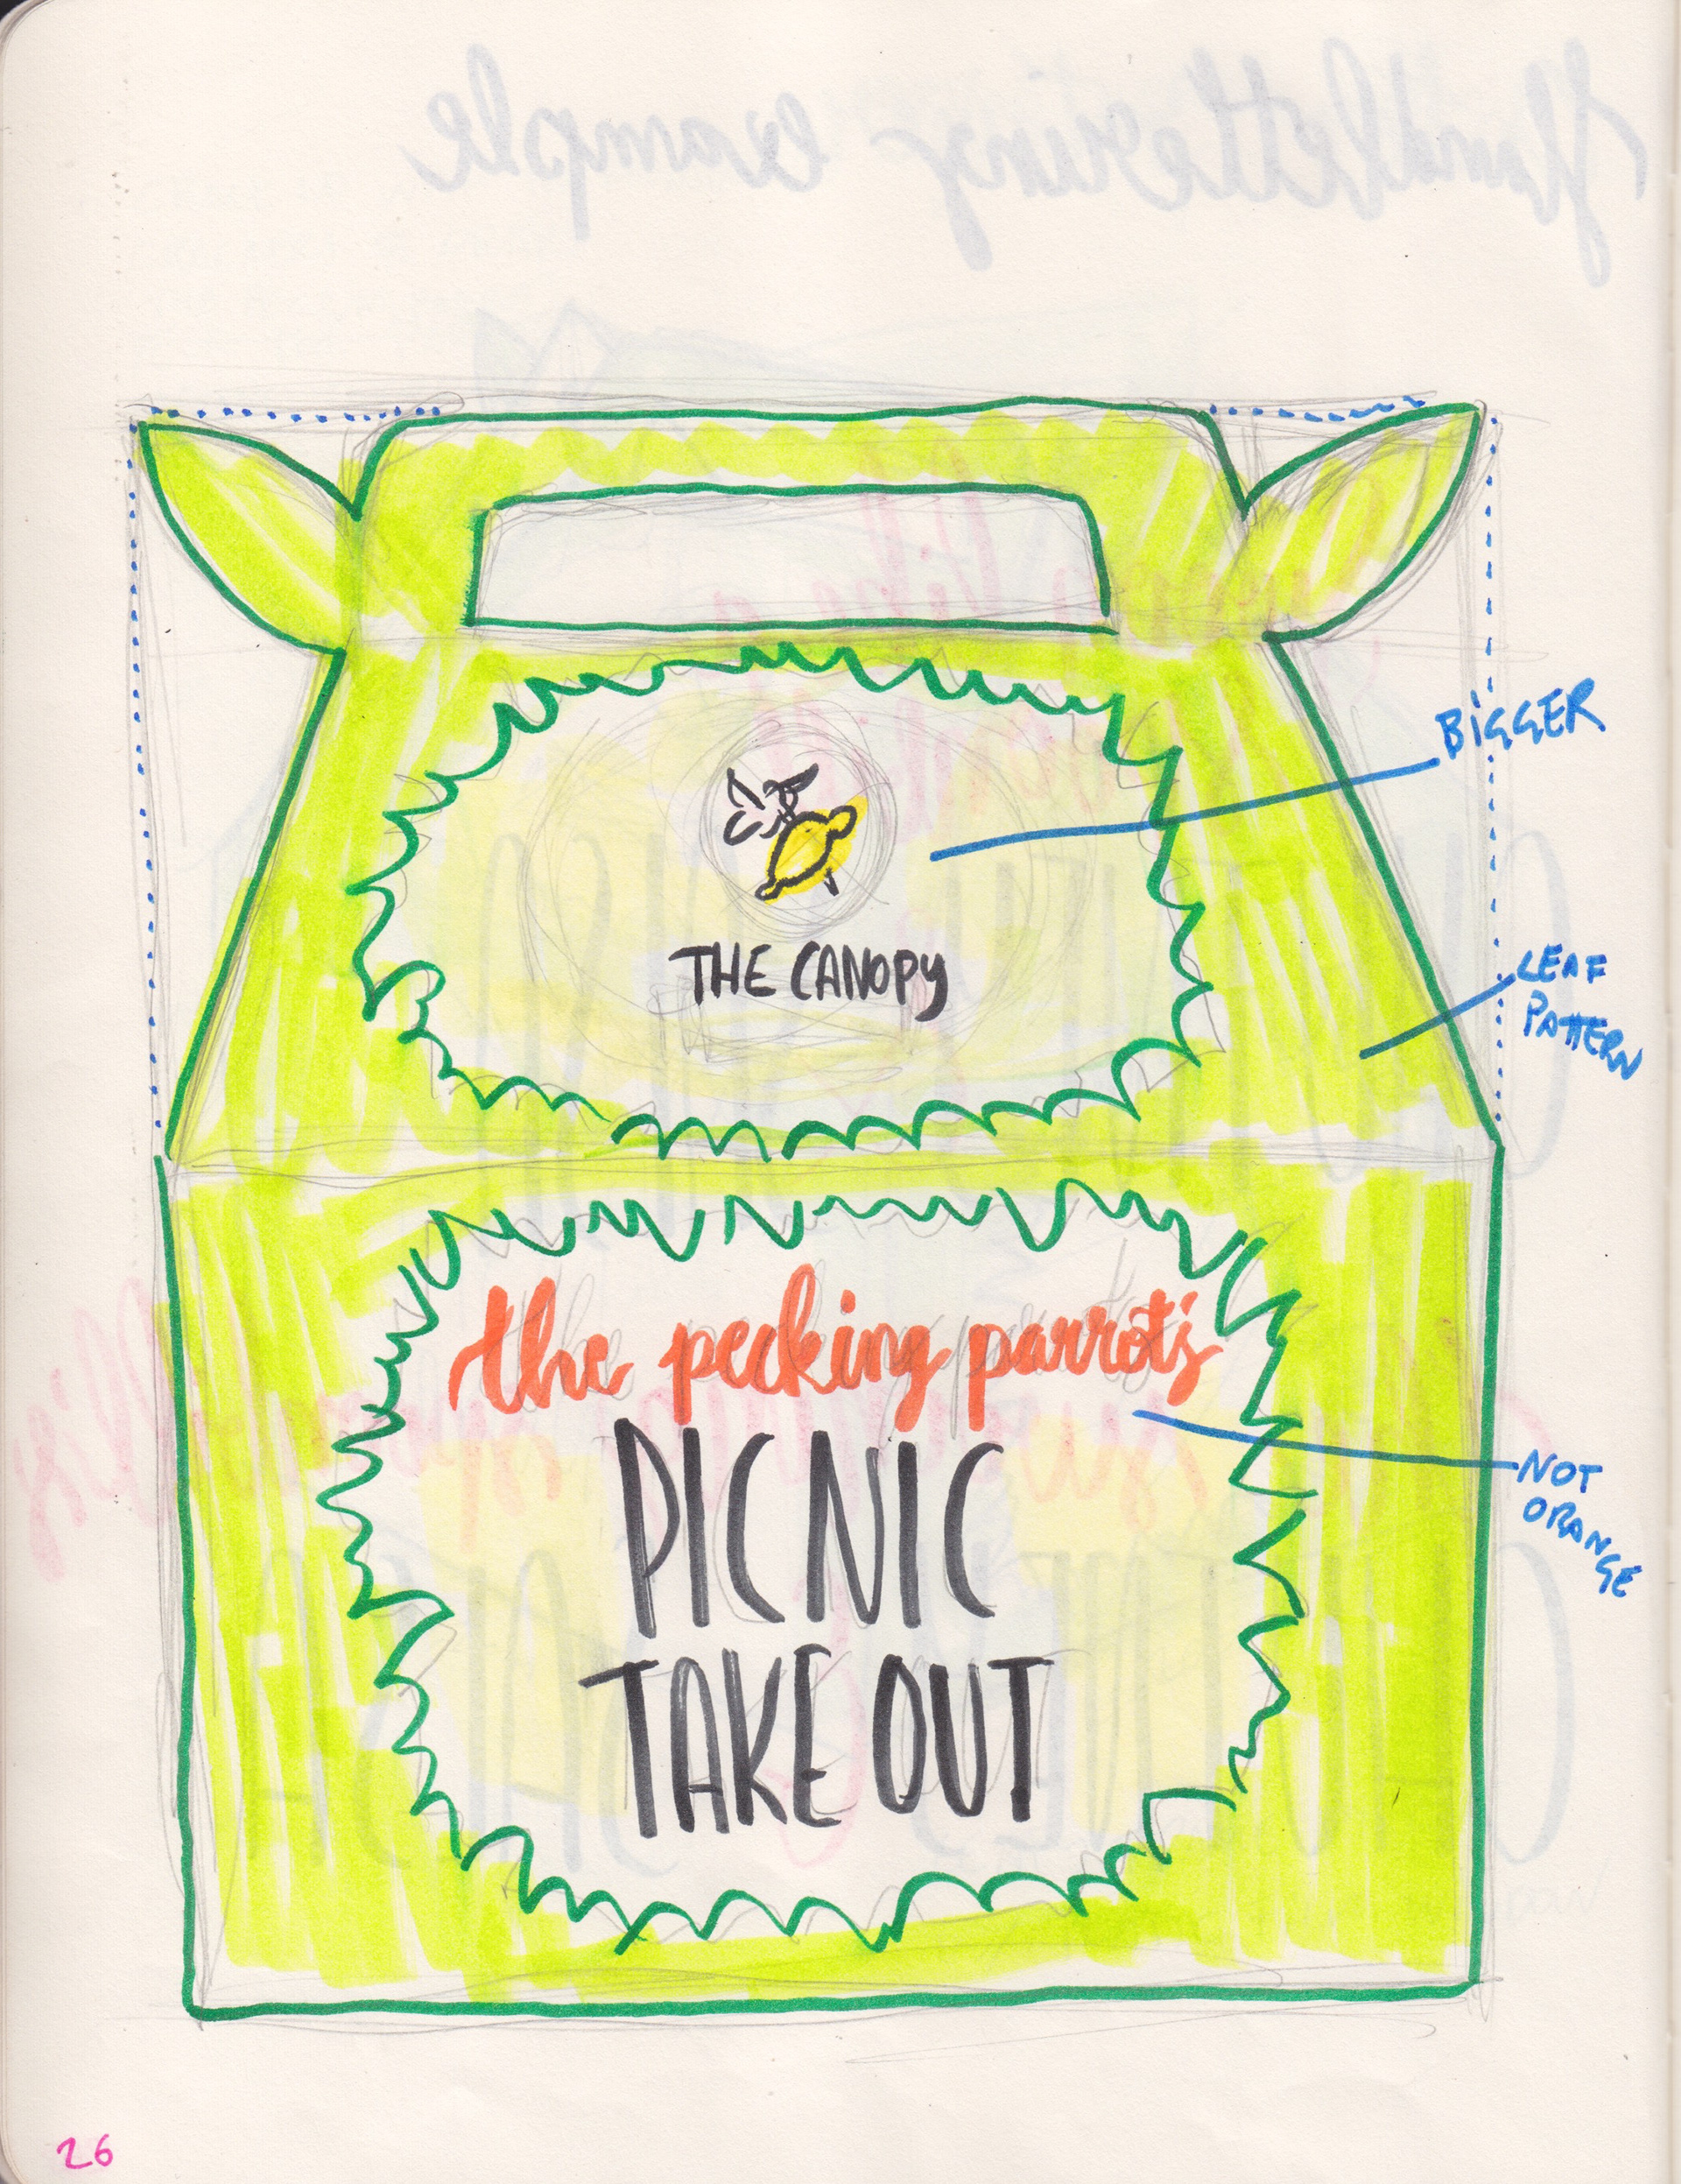 Handlettering example
BIGGER
THE CANOPY
LEAF
PATTERN
the pecking parrot's
PICNIC
TAKE OUT
NOT
ORANGE
26